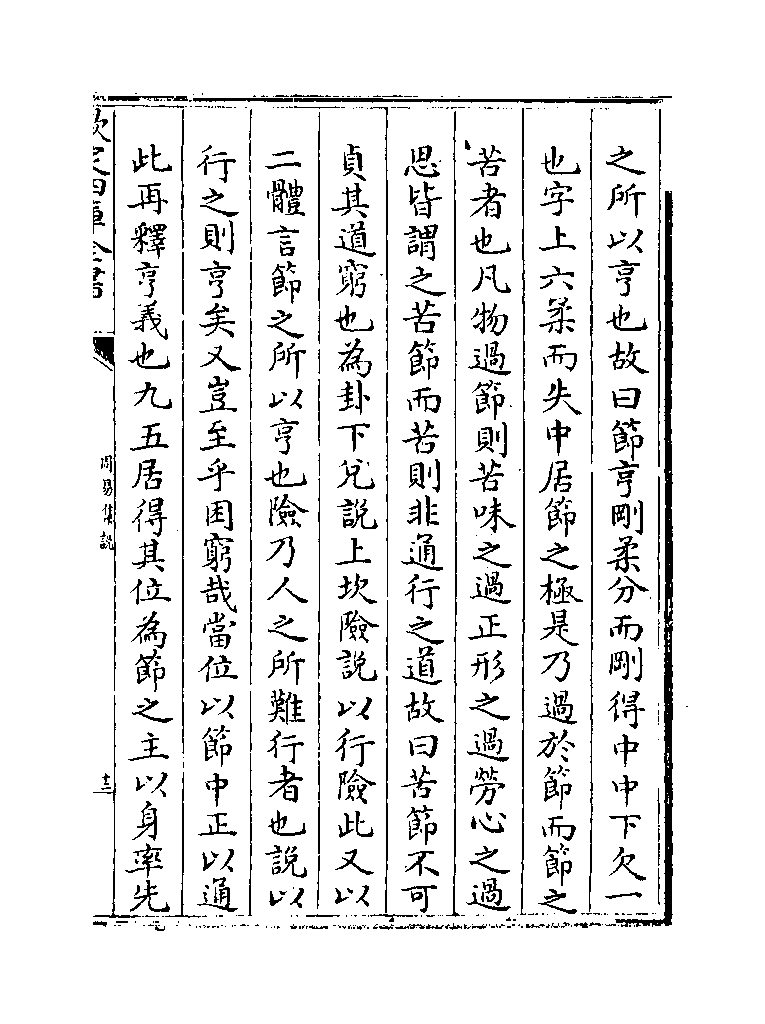 之所以亨也故曰節亨剛柔分而剛得中中下欠一
也字上六柔而失中居節之極是乃過於節而節之
苦者也凡物過節則苦味之過正形之過勞心之過
思皆謂之苦節而苦則非通行之道故曰苦節不可
貞其道窮也為卦下兌説上坎險説以行險此又以
二體言節之所以亨也險乃人之所難行者也説以
行之則亨矣又豈至乎困窮哉當位以節中正以通
此再釋亨義也九五居得其位為節之主以身率先
欽定四庫全書
周易集説
十三